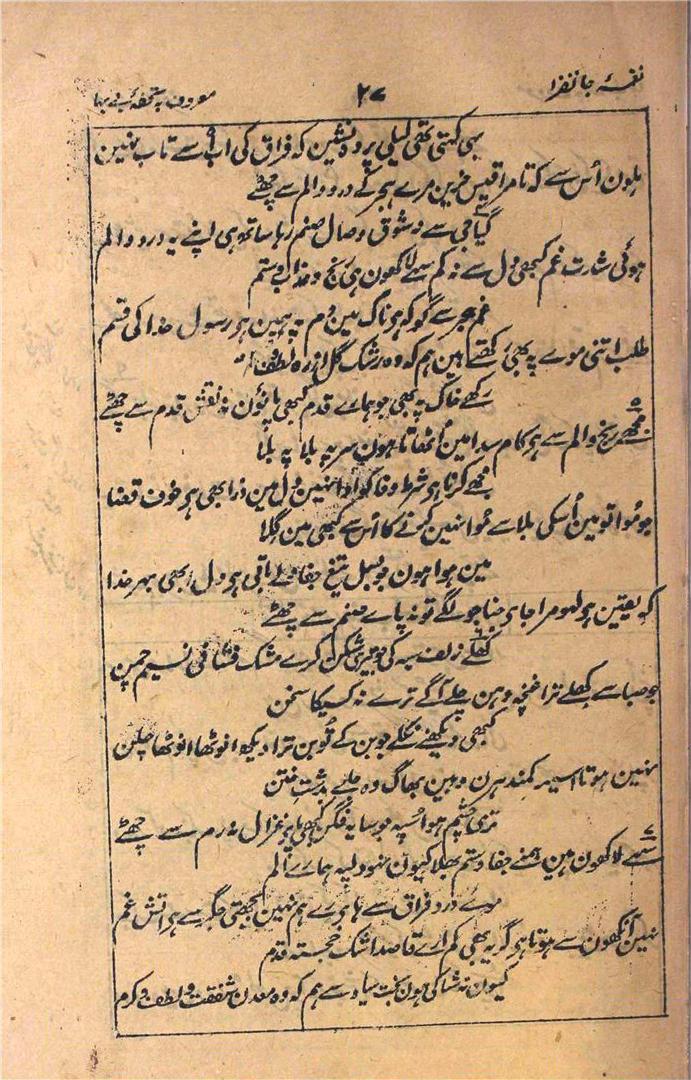 نغمۂ جانفزا ۲۷ معروف بہ تحفۂ بے بہا
یہی کہتی تھی لیلی پردہ نشین کہ فراق کی اب اُسے تاب نہین
ملون اُس سے کہ تا مرا قیس حزین مرے ہجر کے درد و الم سے چھٹے
گیا جی سے نہ شوق وصال صنم رہا ساتھ ہی اپنے یہ درد و الم
ہوئی شارت غم کبھی دل سے نہ کم سہے لاکھون ہی رنج و عذاب و ستم
غم ہجر سے گو کہ ہے ناک مین دم پہ ہمین ہے رسول خدا کی قسم
طلب اتنی موے پہ بھی رکھتے ہین ہم کہ وہ رشک گل از رہ لطف
رکھے خاک پہ بھی جو ہمارے قدم کبھی پائون نہ نقش قدم سے چھٹے
مجھے رنج و الم سے ہے کام سدا مین اُٹھاتا ہون سر پہ بلا پہ بلا
مجھے کرنا ہے شرط وفا کو ادا نہین دل مین ذرا بھی ہے خوف قضا
جو مُوا تو مین اُسکی بلا سے مُوا نہین کرنے کا اُس سے کبھی مین گلا
مین ہوا ہون جو بسمل تیغ جفا ولے باقی ہے دل ابھی بہر خدا
کہ یقین ہے لہو مرا جاے حنا جو لگے تو نہ پاے صنم سے چھٹے
کھلے زلف سیہ کی جو تیری شکن کرے مشک فشانی نسیم چمن
جو صبا سے کھلے ترا غنچہ دہن چلے آگے ترے نہ کسیکا سخن
کبھی دیکھنے نکلے جو بن کے تو بن ترا دیکھ انوٹھا انوٹھا چلن
نہین ہوتا اسیر کمند ہرن وہین بھاگ وہ چلے بدشت ختن
تری چشم ہو اُسپہ جو سایہ فگن کبھی پھر غزال نہ رم سے چھٹے
سہے لاکھون ہین ہمنے جفا و ستم بھلا کیون نہو دلپہ ہمارے الم
موے درد فراق سے ہاے رے ہم نہین بجھتی جگر سے ہے آتش غم
نہین آنکھون سے ہوتا ہے گریہ بھی کم ارے قاصد اشک خجستہ قدم
کیون نہ شاکی ہون بخت سیاہ سے ہم کہ وہ معدن شفقت و لطف و کرم